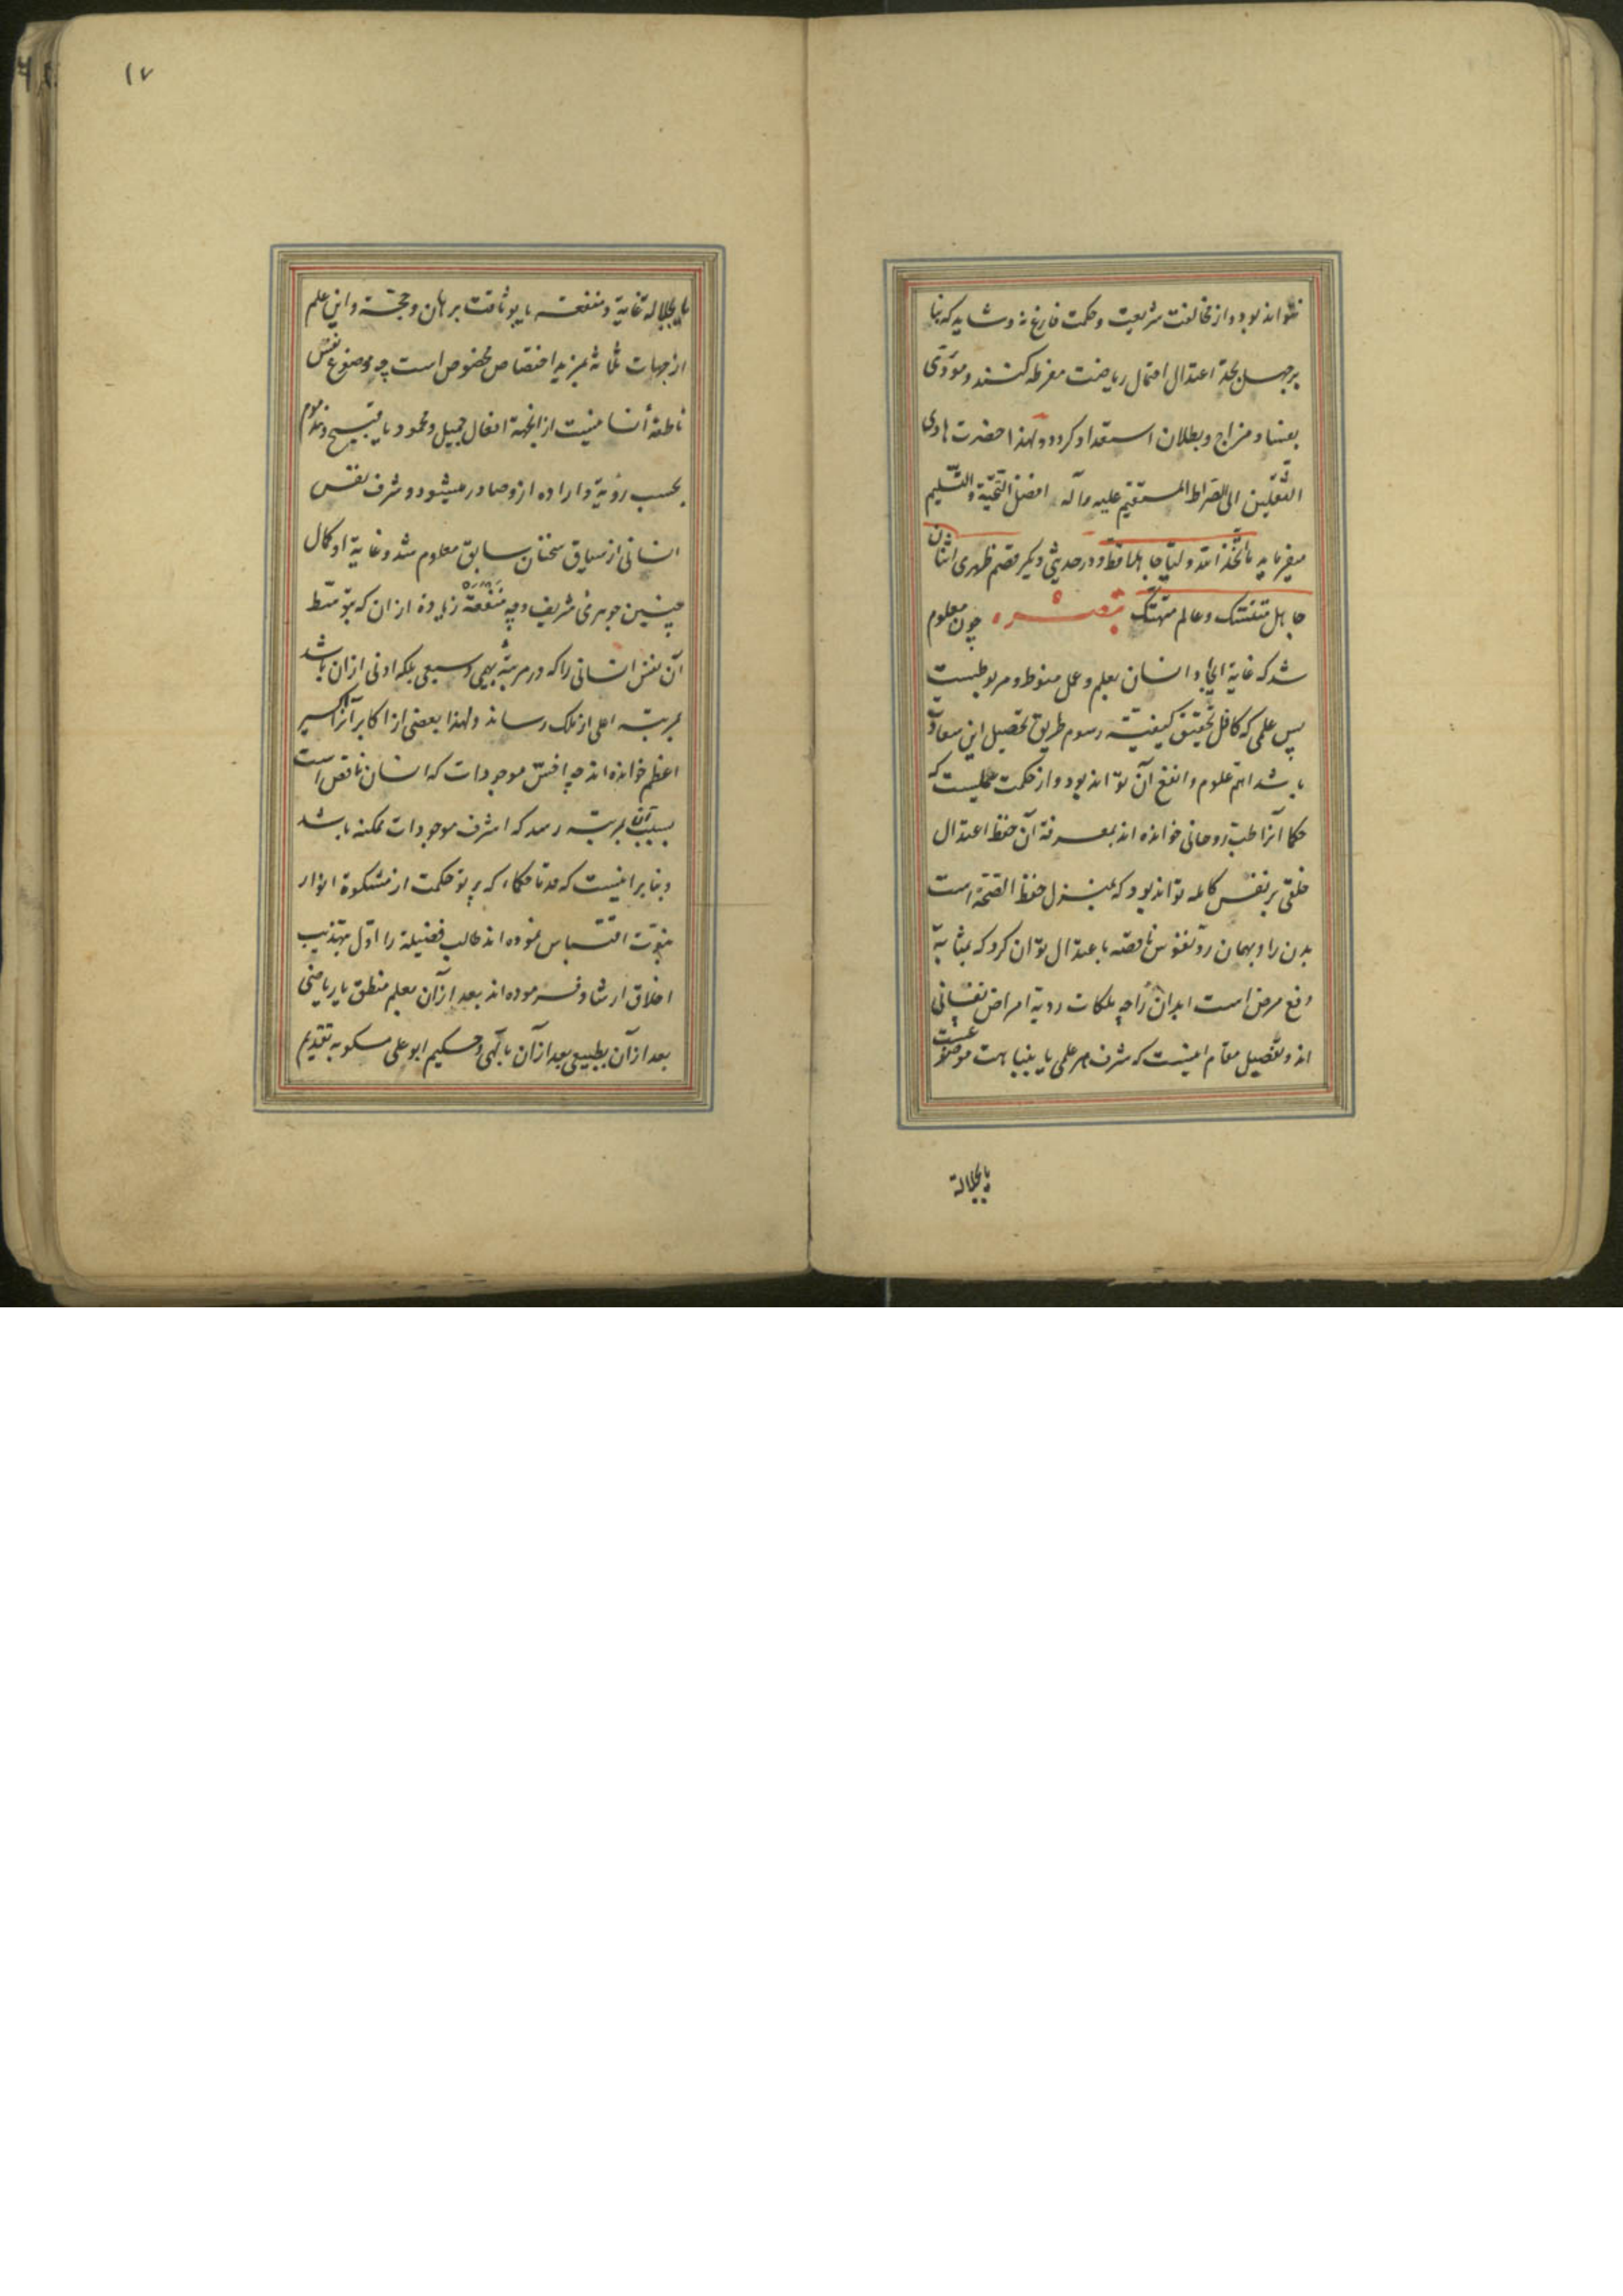 نتواند بود و از مخالفت شریعت و حکمت فارغ نه و شاید که بنا
بر جهل بحد اعتدال احتمال ریاضت مفرطه کنند و مؤدی
بفساد مزاج و بطلان استعداد کردد و لهذا حضرت هادی
الثقلین الی الصراط المستقیم علیه وآله افضل التحیة والتسلیم
میفرماید ما اتخذ الله ولیا جاهلا قط و در حدیثی دیکر قصم ظهری اثنان
جاهل متنسک و عالم متهتک تبصره چون معلوم
شد که غایة ایجاد انسان بعلم و عمل منوط و مربوطست
پس علمی که کافل تحقیق کیفیة رسوم طریق تحصیل این سعادت
باشد اهم علوم و انفع آن تواند بود و از حکمت عملیست که
حکما آنرا طب روحانی خوانده اند بمعرفة آن حفظ اعتدال
خلقی بر نفس کامله تواند بود که بمنزل حفظ الصحة است
بدن را و بهمان رد نفوس ناقصه باعتدال توان کرد که بمثابة
دفع مرض است ابدان را چه ملکات ردیة امراض نفسانی
اند و تفصیل مقام اینست که شرف هر علمی یا بنباهت موضوعست
یا بجلالة
یا بجلاله غایة و منفعة یا بوثاقت برهان و حجة و این علم
از جهات ثلاثه بمزید اختصاص مخصوص است چه موضوع نفس
ناطقهٔ انسانیست از انجهة افعال جمیل و محمود یا قبیح و مذموم
بحسب رؤیة و اراده ازو صادر میشود و شرف نفس
انسانی از سیاق سخنان سابق معلوم شد و غایة او کمال
چنین جوهری شریف و چه منفعة زیاده از ان که بتوسط
آن نفس انسانی را که در مرتبهٔ بهیمی و سبعی بلکه ادنی از ان باشد
بمرتبه اعلی از ملک رساند و لهذا بعضی از اکابر آنرا اکسیر
اعظم خوانده اند چه اخس موجودات که انسان ناقص است
بسبب آن بمرتبه رسد که اشرف موجودات ممکنه باشد
و بنابر اینست که قدما حکماء که پرتو حکمت از مشکوة انوار
نبوت اقتباس نموده اند طالب فضیلة را اول بتهذیب
اخلاق ارشاد فرموده اند بعد از آن بعلم منطق یا ریاضی
بعد از آن بطبیعی بعد از آن بالهی و حکیم ابو علی مسکویه تقدیم
۱۷